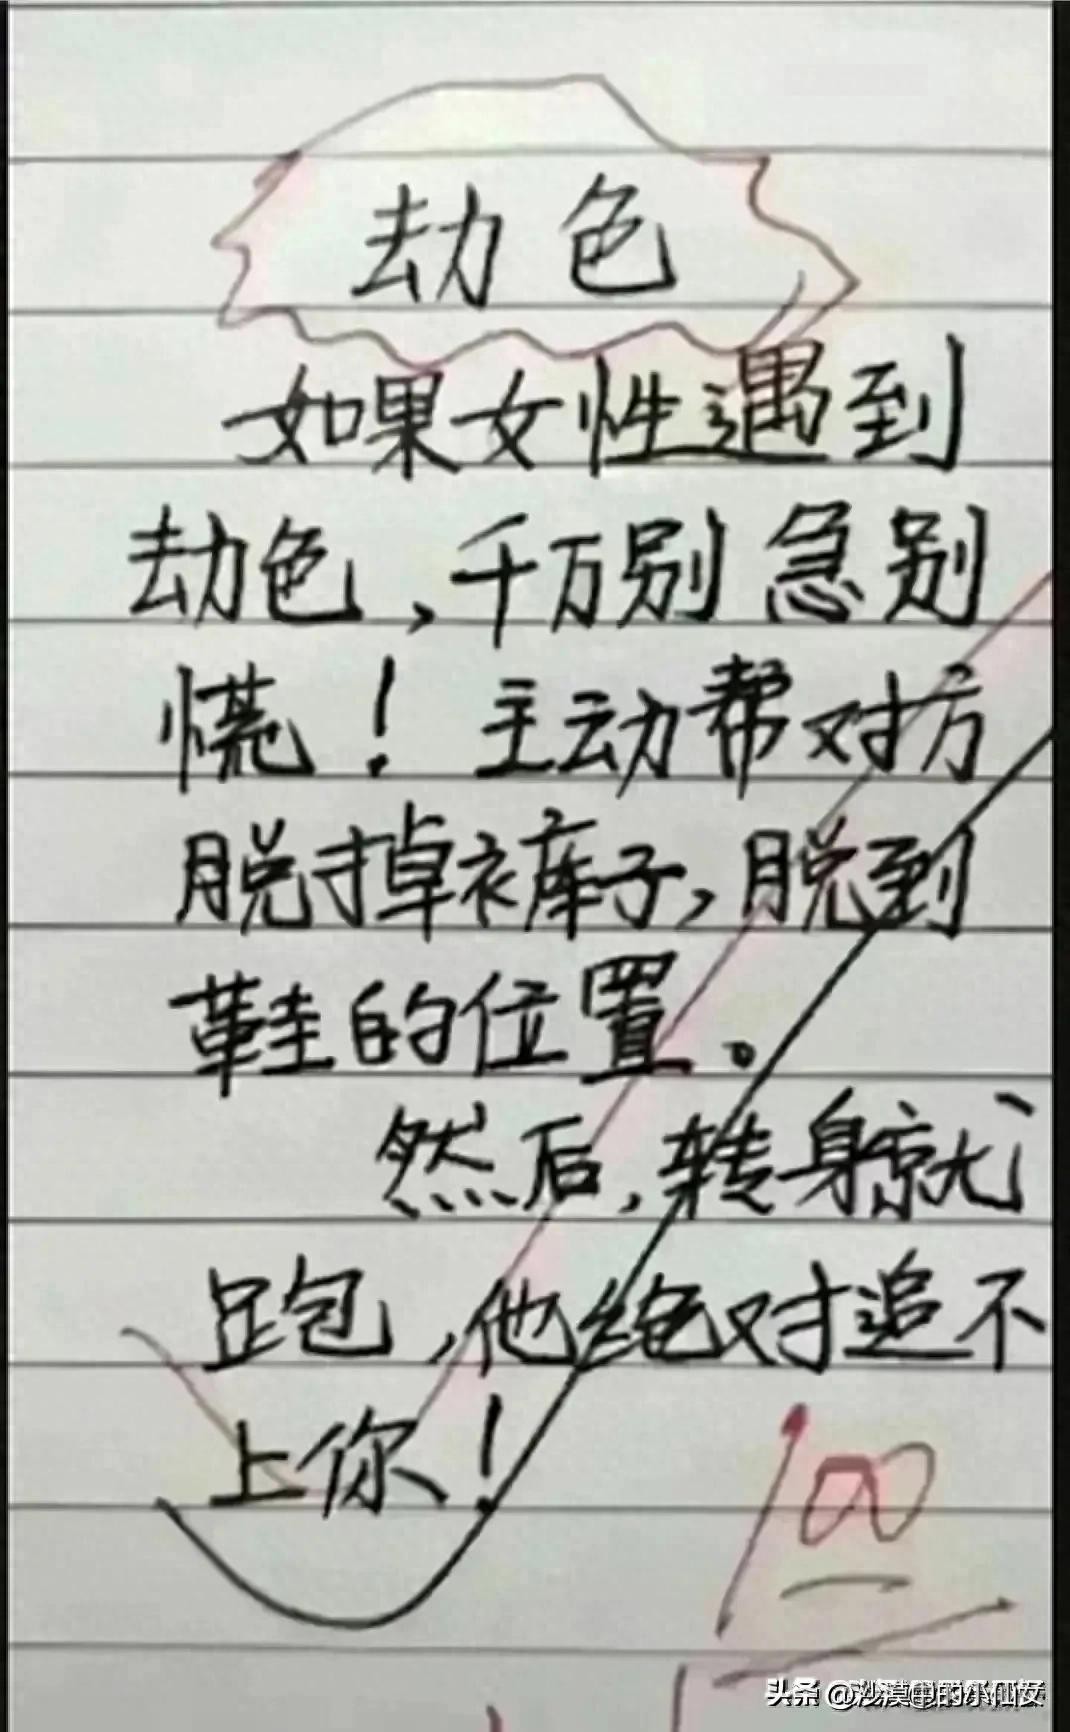 劫色
如果女性遇到
劫色,千万别急别
慌!主动帮对方
脱掉裤子,脱到
鞋的位置。
然后,转身就
跑,他绝对追不
上你!
100
头条 @沙漠里的小仙女